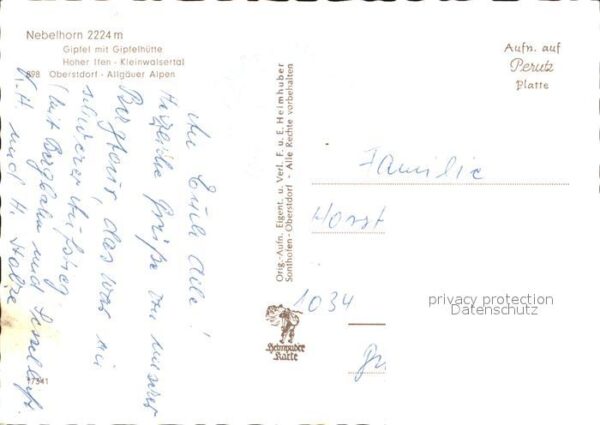 Nebelhorn 2224 m
Gipfel mit Gipfelhütte
Hoher Ifen - Kleinwalsertal
898 Oberstdorf - Allgäuer Alpen
An Euch Alle!
Herzliche Grüße von unserer
Bergtour, das war ein
schwerer Aufstieg
(mit Bergbahn und Sessellift.
und H.
17341
Orig.-Aufn. Eigent. u. Verl. F. u. E. Heimhuber
Sonthofen-Oberstdorf - Alle Rechte vorbehalten
Heimhuber
Karte
Aufn. auf
Perutz
Platte
Familie
Horst
1034
privacy protection
Datenschutz